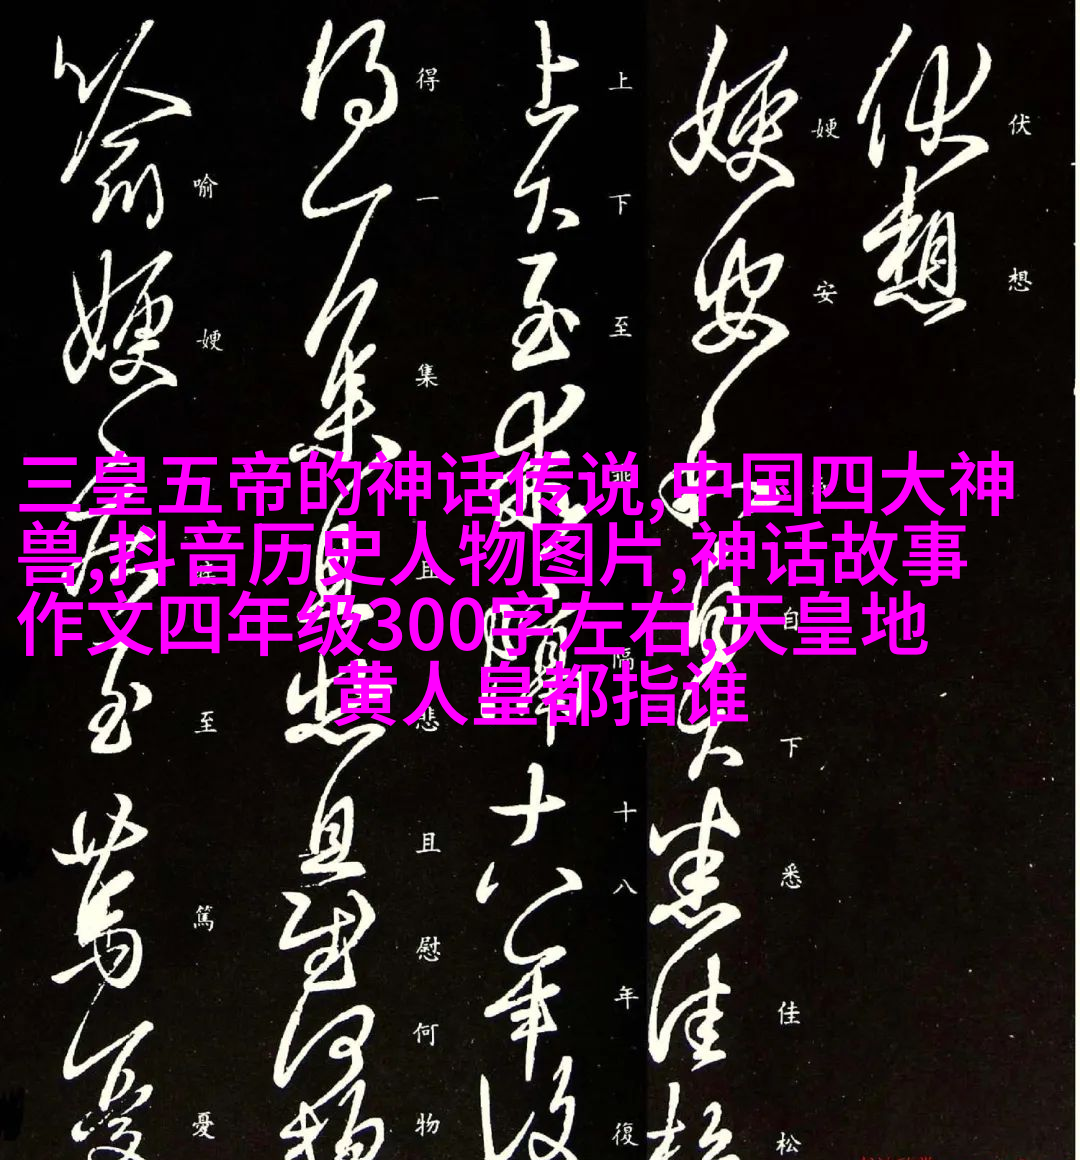 三皇五帝的神话传说,中国四大神
兽,抖音历史人物图片,神话故事
作文四年级300字左右,天皇地
黄人皇都指谁
伏想
㛐安和自下悉佳松
上下至乖隔十八年復
得一集且悲且慰何物
喻㛐至篤憂